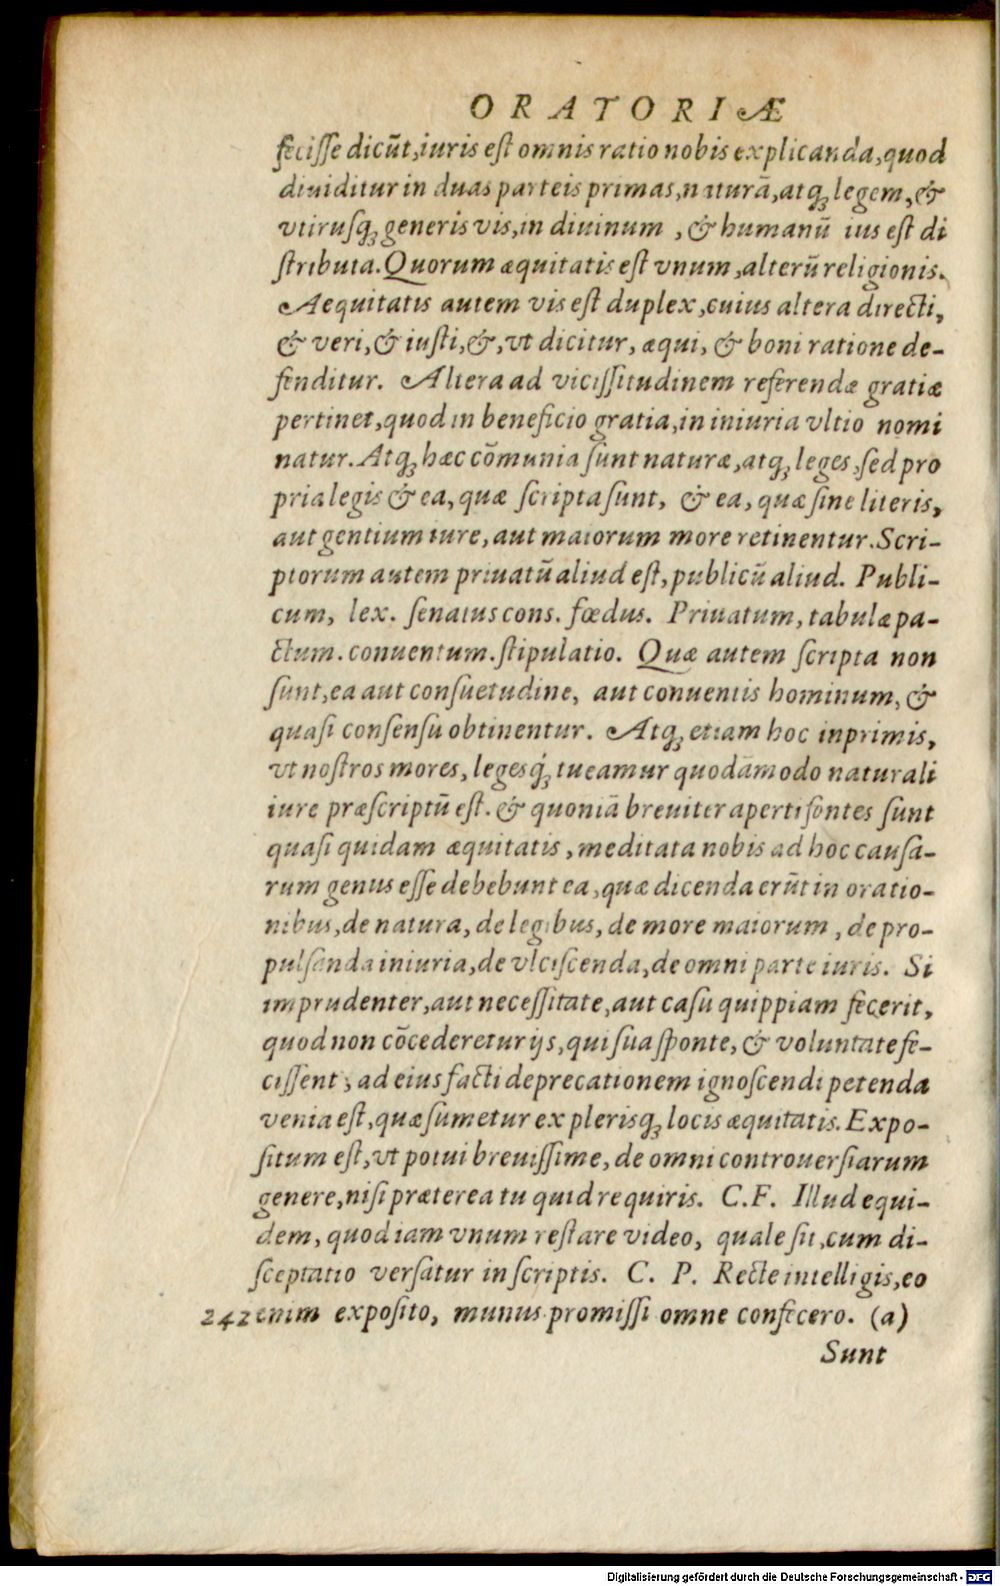 ORATORIÆ
feciſſe dicūt, iuris eſt omnis ratio nobis explicanda, quod
diuiditur in duas parteis primas, naturā, atqꝫ legem, &
vtriuſqꝫ generis vis, in diuinum , & humanū ius eſt di
ſtributa. Quorum æquitatis eſt vnum, alterū religionis.
Aequitatis autem vis eſt duplex, cuius altera directi,
& veri, & iuſti, &, vt dicitur, æqui, & boni ratione de-
fenditur. Altera ad viciſſitudinem referendæ gratiæ
pertinet, quod in beneficio gratia, in iniuria vltio nomi
natur. Atqꝫ hæc cōmunia ſunt naturæ, atqꝫ leges, ſed pro
pria legis & ea, quæ ſcripta ſunt, & ea, quæ ſine literis,
aut gentium iure, aut maiorum more retinentur. Scri-
ptorum autem priuatū aliud eſt, publicū aliud. Publi-
cum, lex. ſenatus cons. fœdus. Priuatum, tabulæ pa-
ctum. conuentum. ſtipulatio. Quæ autem ſcripta non
ſunt, ea aut conſuetudine, aut conuentis hominum, &
quaſi conſenſu obtinentur. Atqꝫ etiam hoc inprimis,
vt noſtros mores, legesq́ꝫ tueamur quodāmodo naturali
iure præſcriptū eſt. & quoniā breuiter aperti fontes ſunt
quaſi quidam æquitatis, meditata nobis ad hoc cauſa-
rum genus eſſe debebunt ea, quæ dicenda erūt in oratio-
nibus, de natura, de legibus, de more maiorum , de pro-
pulſanda iniuria, de vlciſcenda, de omni parte iuris. Si
imprudenter, aut neceſſitate, aut caſu quippiam fecerit,
quod non cōcederetur ijs, qui ſua ſponte, & voluntate fe-
ciſſent, ad eius facti deprecationem ignoſcendi petenda
venia eſt, quæ ſumetur ex plerisqꝫ locis æquitatis. Expo-
ſitum eſt, vt potui breuiſſime, de omni controuerſiarum
genere, niſi præterea tu quid requiris. C.F. Illud equi-
dem, quod iam vnum reſtare video, quale ſit, cum di-
ſceptatio verſatur in ſcriptis. C. P. Recte intelligis, eo
242 enim expoſito, munus promiſſi omne confecero. (a)
Sunt
Digitalisierung gefördert durch die Deutsche Forschungsgemeinschaft - DFG